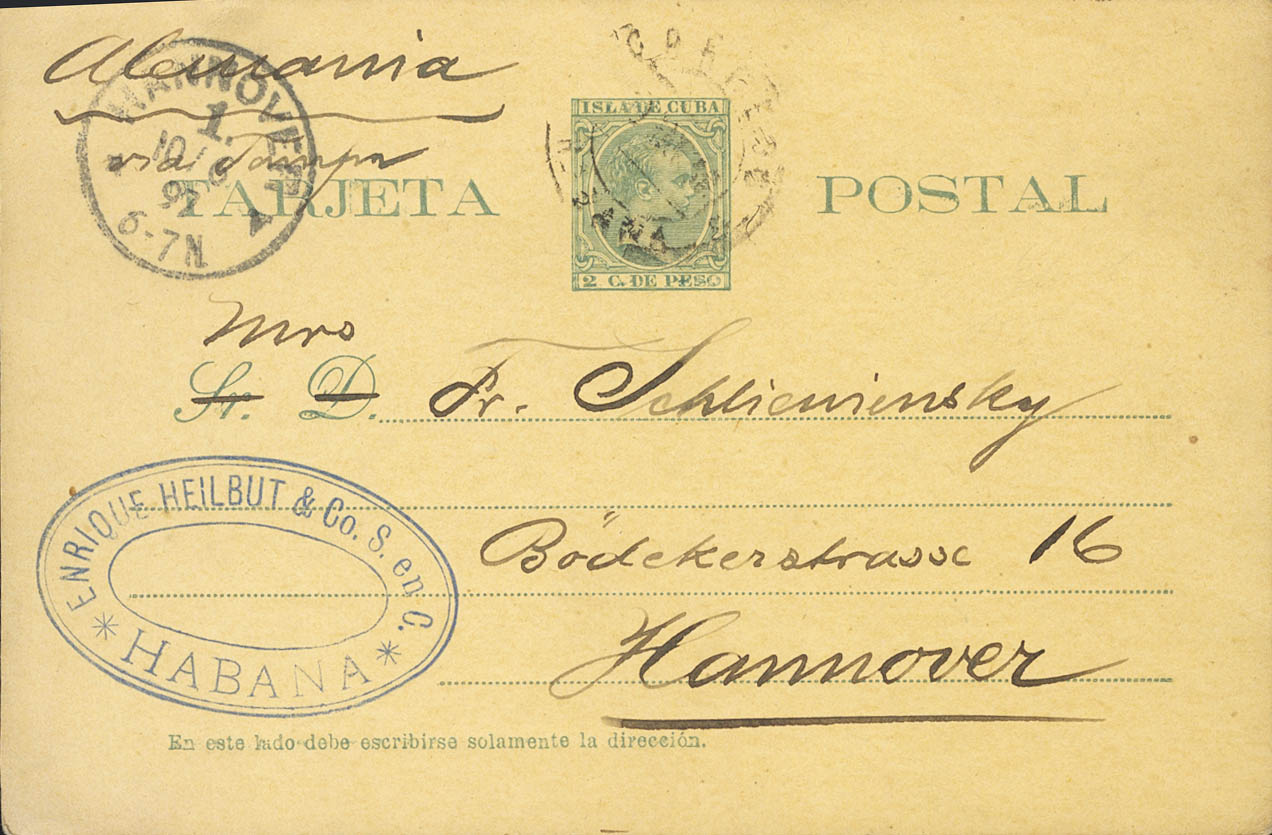 Alemania
via Tampa
HANNOVER
1.
10/6
97
6-7N
CORREOS
ISLA DE CUBA
2 C. DE PESO
TARJETA POSTAL
Mrs
Sr. D. Fr. Schliewiensky
Bödekerstrasse 16
Hannover
ENRIQUE HEILBUT & Co. S. en C.
* HABANA *
En este lado debe escribirse solamente la dirección.